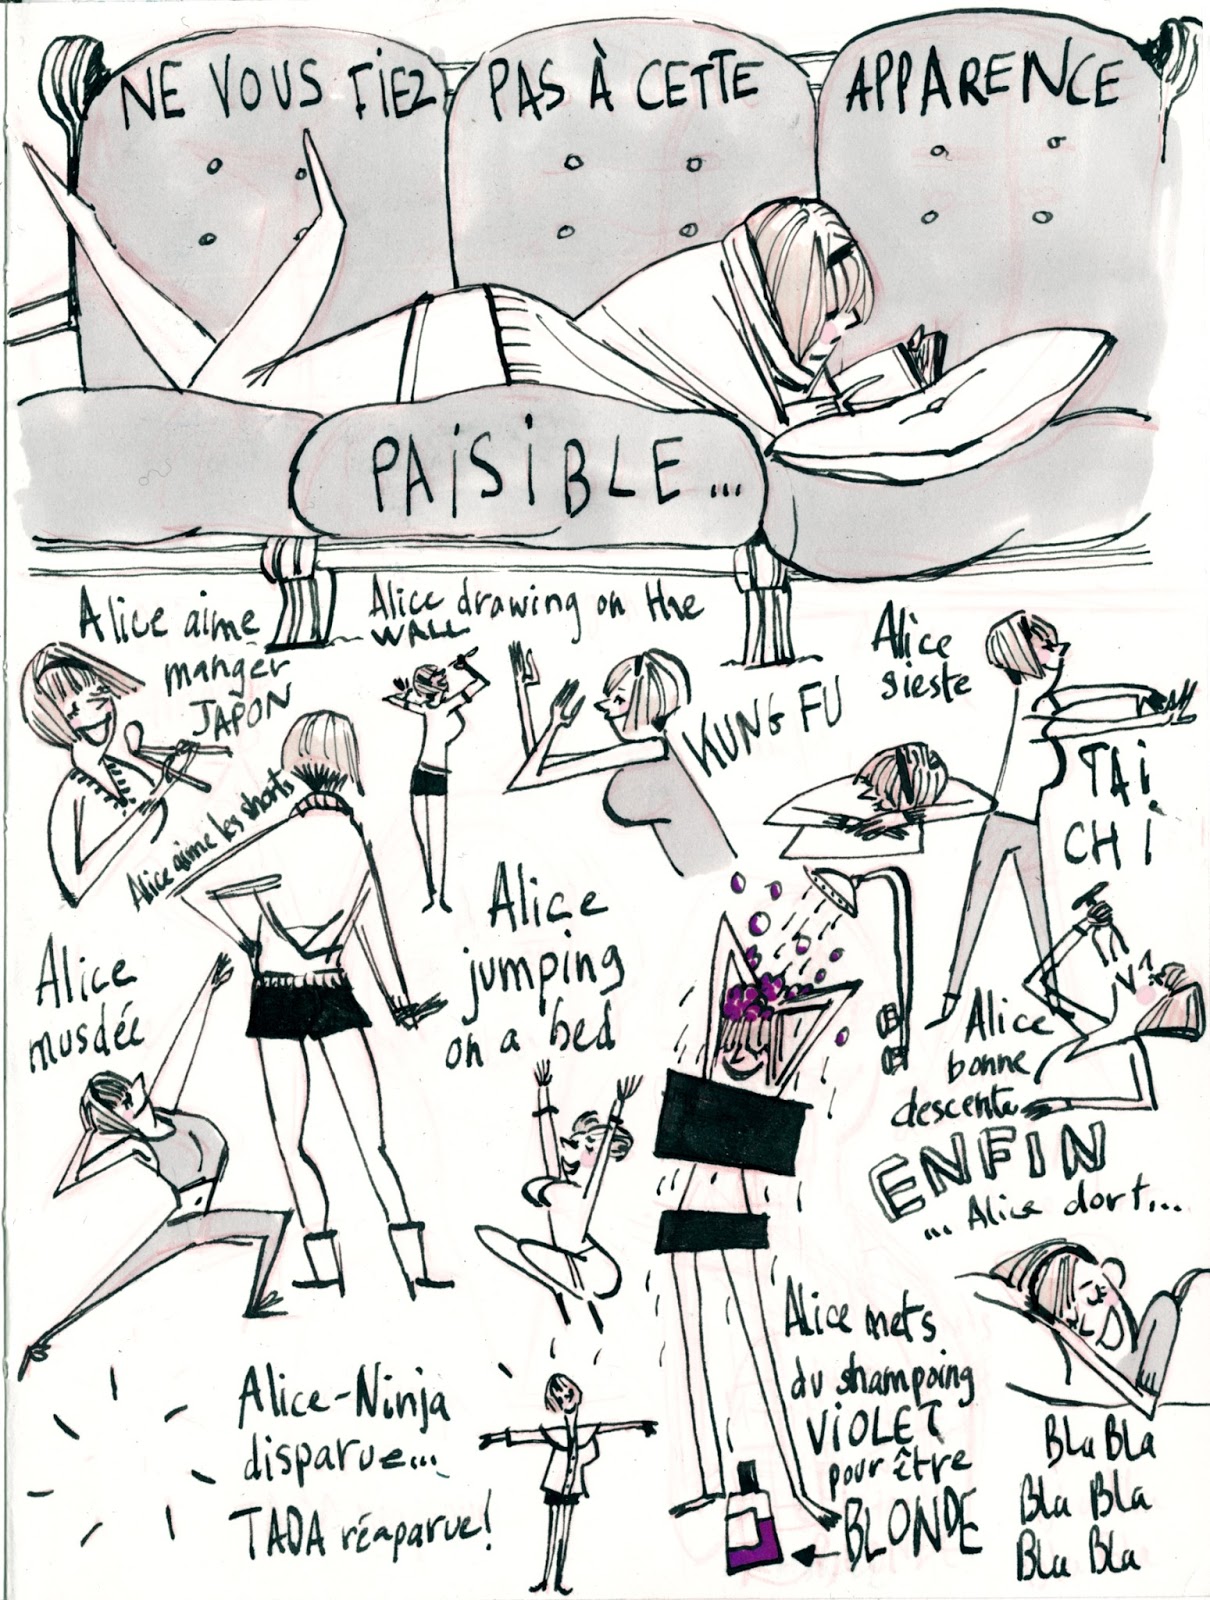 NE VOUS FIEZ PAS À CETTE APPARENCE
PAISIBLE...
Alice aime
manger
JAPON
Alice drawing on the
WALL
KUNG FU
Alice
sieste
TAI
CHI
Alice aime les shorts
Alice
musdée
Alice
jumping
on a bed
Alice
bonne
descente
ENFIN
... Alice dort...
Alice-Ninja
disparue...
TADA réaparue!
Alice mets
du shampoing
VIOLET
pour être
BLONDE
Bla Bla
Bla Bla
Bla Bla